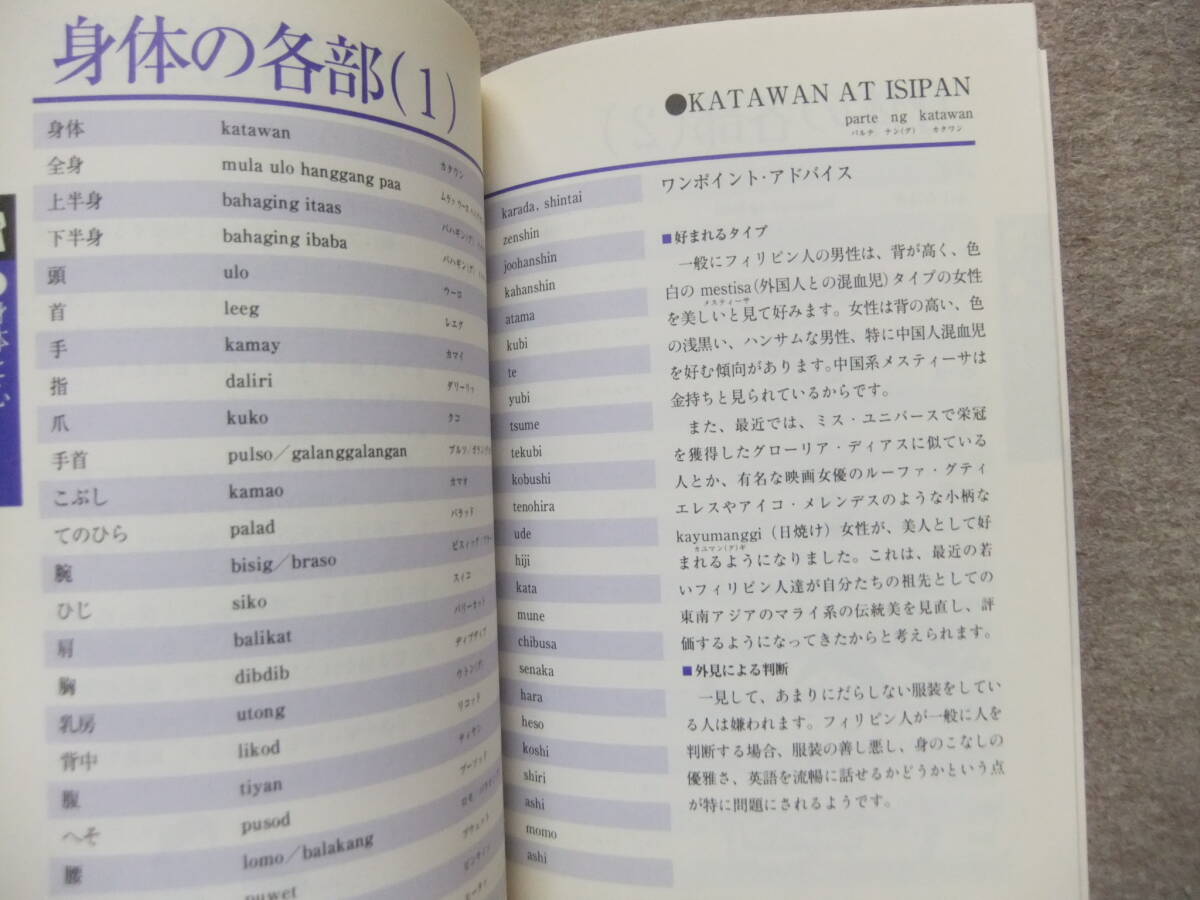 身体の各部(1)
身体 katawan カタワン
全身 mula ulo hanggang paa
上半身 bahaging itaas
下半身 bahaging ibaba
頭 ulo ウーロ
首 leeg レエグ
手 kamay カマイ
指 daliri ダリーリッ
爪 kuko クコ
手首 pulso／galanggalangan
こぶし kamao カマオ
てのひら palad パラッド
腕 bisig／braso
ひじ siko スィコ
肩 balikat バリーカット
胸 dibdib ディブディブ
乳房 utong ウトン(グ)
背中 likod リコッド
腹 tiyan ティヤン
へそ pusod プーソッド
腰 lomo／balakang
puwet プウェット
●KATAWAN AT ISIPAN
parte ng katawan
パルテ ナン(グ) カタワン
karada, shintai
zenshin
joohanshin
kahanshin
atama
kubi
te
yubi
tsume
tekubi
kobushi
tenohira
ude
hiji
kata
mune
chibusa
senaka
hara
heso
koshi
shiri
ashi
momo
ashi
ワンポイント・アドバイス
■好まれるタイプ
一般にフィリピン人の男性は、背が高く、色
白の mestisa(外国人との混血児)タイプの女性
メスティーサ
を美しいと見て好みます。女性は背の高い、色
の浅黒い、ハンサムな男性、特に中国人混血児
を好む傾向があります。中国系メスティーサは
金持ちと見られているからです。
また、最近では、ミス・ユニバースで栄冠
を獲得したグローリア・ディアスに似ている
人とか、有名な映画女優のルーファ・グティ
エレスやアイコ・メレンデスのような小柄な
kayumanggi（日焼け）女性が、美人として好
カユマン(グ)ギ
まれるようになりました。これは、最近の若
いフィリピン人達が自分たちの祖先としての
東南アジアのマライ系の伝統美を見直し、評
価するようになってきたからと考えられます。
■外見による判断
一見して、あまりにだらしない服装をしてい
る人は嫌われます。フィリピン人が一般に人を
判断する場合、服装の善し悪し、身のこなしの
優雅さ、英語を流暢に話せるかどうかという点
が特に問題にされるようです。